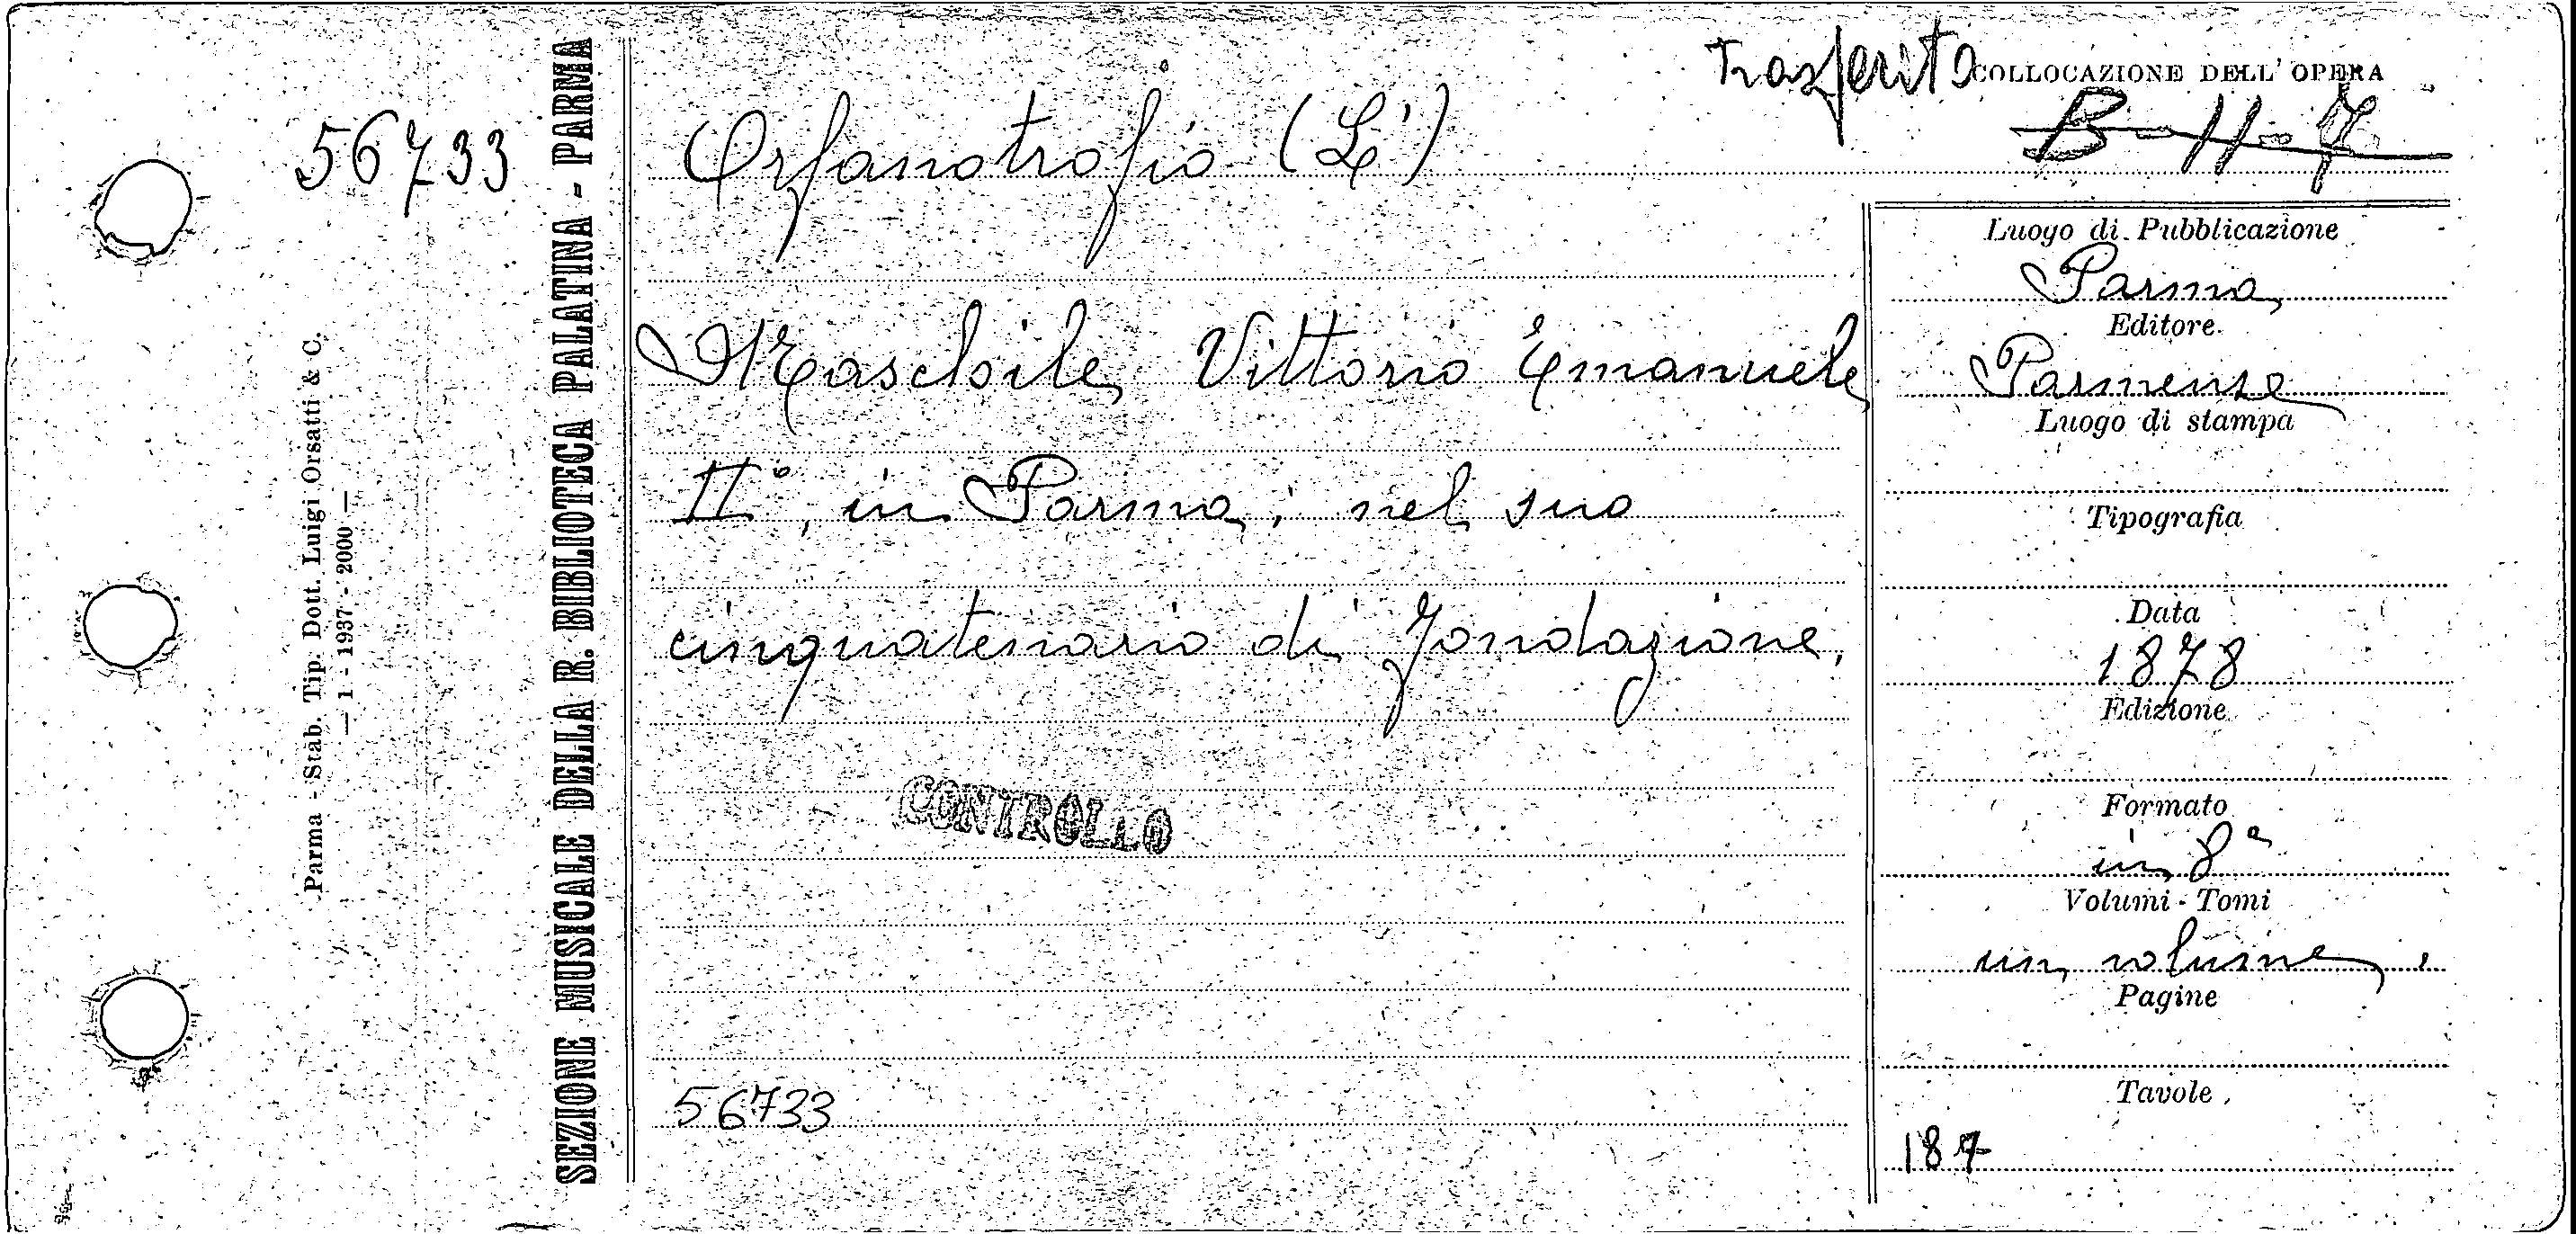 56733
Parma - Stab. Tip. Dott. Luigi Orsatti & C.
— 1 - 1937 - 2000 —
SEZIONE MUSICALE DELLA R. BIBLIOTECA PALATINA - PARMA
Orfanotrofio (L')
Maschile Vittorio Emanuele
II°, in Parma, nel suo
cinquatenario di fondazione.
CONTROLLO
56733
Trasferito
COLLOCAZIONE DELL' OPERA
B-II-7
Luogo di Pubblicazione
Parma
Editore
Parmense
Luogo di stampa
Tipografia
Data
1878
Edizione
Formato
in 8ª
Volumi - Tomi
un volume.
Pagine
Tavole
187